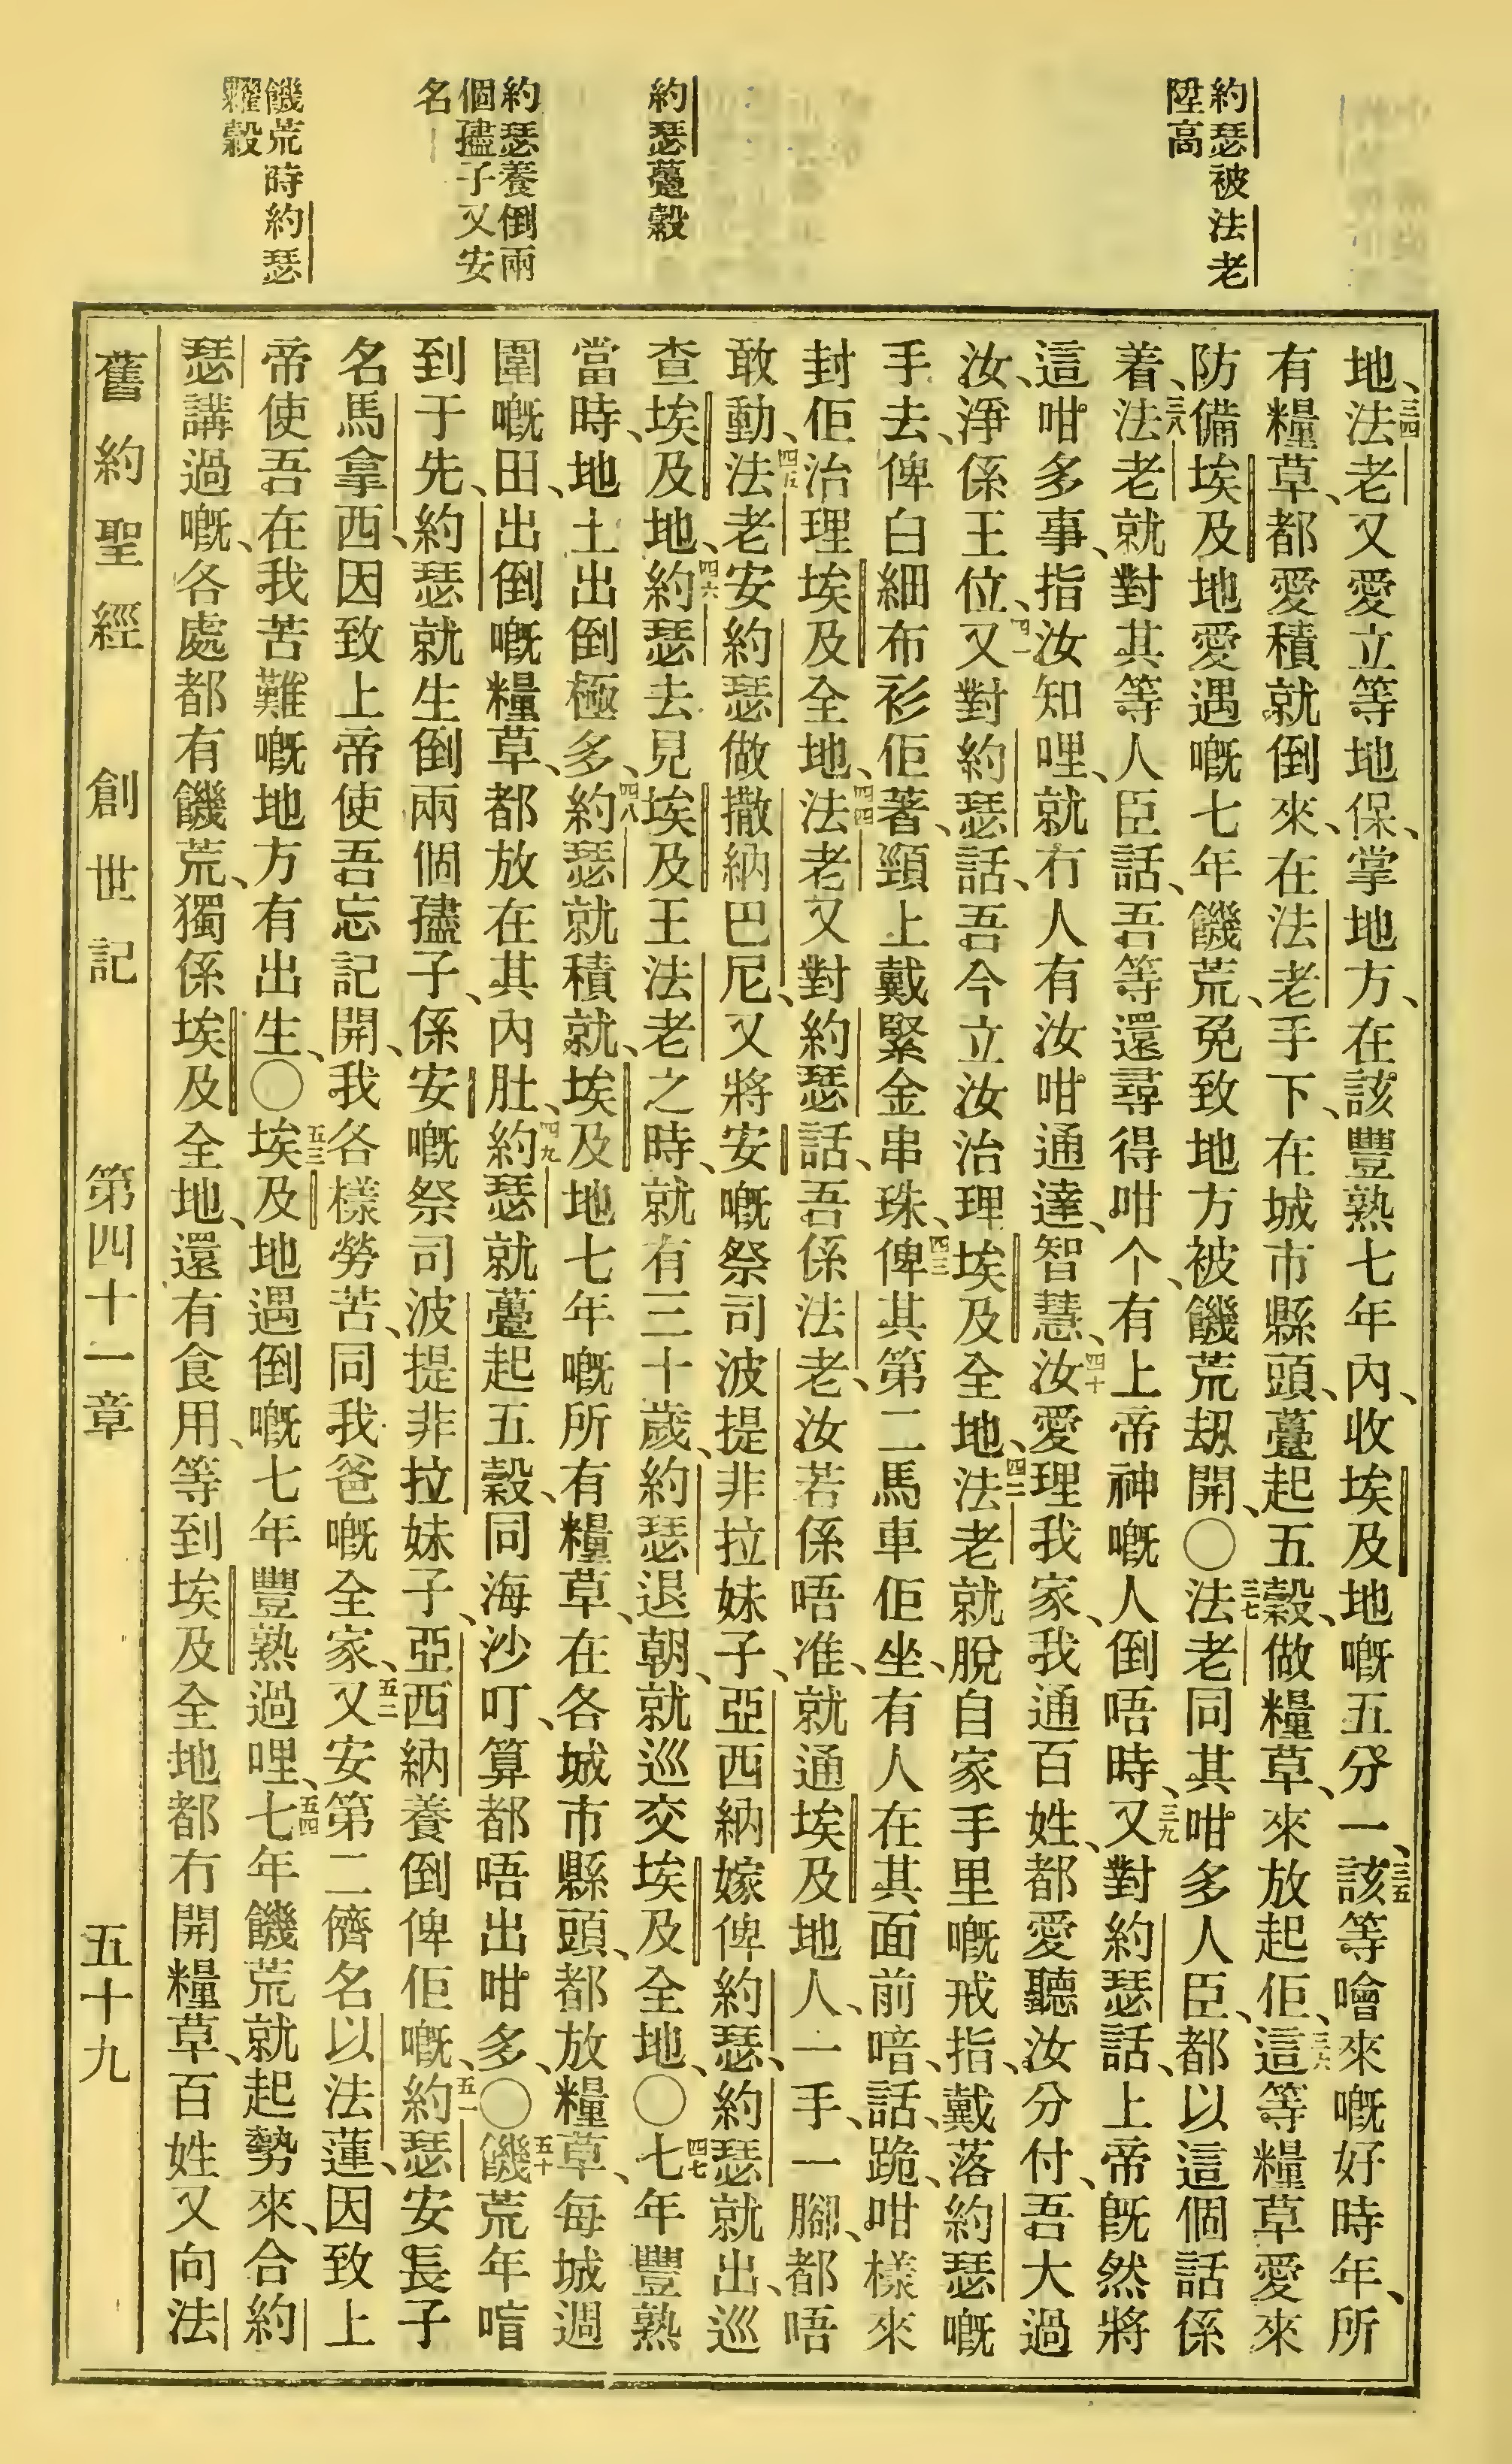 約瑟被法老
陞高
約瑟躉穀
約瑟養倒兩
個孻子又安
名
饑荒時約瑟
糶穀
地、三四法老又愛立等地保、掌地方、在該豐熟七年內、收埃及地嘅五分一、三五該等噲來嘅好時年、所
有糧草、都愛積就倒來、在法老手下、在城市縣頭、躉起五穀、做糧草、來放起佢、三六這等糧草愛來
防備埃及地愛遇嘅七年饑荒、免致地方被饑荒刼開、〇三七法老同其咁多人臣、都以這個話係
着、三八法老就對其等人臣話、吾等還尋得咁个、有上帝神嘅人倒唔時、三九又對約瑟話、上帝既然將
這咁多事、指汝知哩、就冇人有汝咁通達、智慧、四十汝愛理我家、我通百姓、都愛聽汝分付、吾大過
汝、淨係王位、四一又對約瑟話、吾今立汝治理埃及全地、四二法老就脫自家手里嘅戒指、戴落約瑟嘅
手去、俾白細布衫佢著、頸上戴緊金串珠、四三俾其第二馬車佢坐、有人在其面前喑、話、跪、咁樣來
封佢治理埃及全地、四四法老又對約瑟話、吾係法老、汝若係唔准、就通埃及地人、一手、一腳、都唔
敢動、四五法老安約瑟做撒納巴尼、又將安嘅祭司波提非拉妹子、亞西納嫁俾約瑟、約瑟就出、巡
查埃及地、四六約瑟去見埃及王法老之時、就有三十歲、約瑟退朝、就巡交埃及全地、〇四七七年豐熟
當時、地土出倒極多、四八約瑟就積就、埃及地七年嘅所有糧草、在各城市縣頭、都放糧草、每城週
圍嘅田、出倒嘅糧草、都放在其內肚、四九約瑟就躉起五穀、同海沙叮、算都唔出咁多、〇五十饑荒年唁
到于先、約瑟就生倒兩個孻子、係安嘅祭司波提非拉妹子、亞西納養倒俾佢嘅、五一約瑟安長子
名馬拿西、因致上帝使吾忘記開、我各樣勞苦、同我爸嘅全家、五二又安第二儕名以法蓮、因致上
帝使吾在我苦難嘅地方有出生、〇五三埃及地遇倒嘅七年豐熟過哩、五四七年饑荒就起勢來、合約
瑟講過嘅、各處都有饑荒、獨係埃及全地、還有食用、等到埃及全地都冇開糧草、百姓又向法
舊約聖經　創世記　第四十一章　五十九